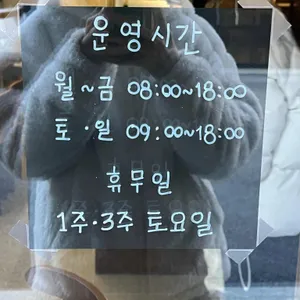 운영시간
월~금 08:00~18:00
토·일 09:00~18:00
휴무일
1주·3주 토요일